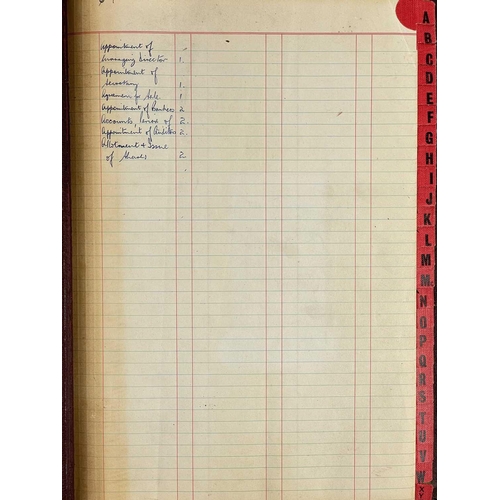 Appointment of
Managing Director 1.
Appointment of
Secretary 1.
Agreement for Sale 1
Appointment of Bankers 2
Accounts, period of 2.
Appointment of Auditors 2.
Allotment & Issue
of Shares 2
A
B
C
D
E
F
G
H
I
J
K
L
M
Mc
N
O
P
Q
R
S
T
U
V
W